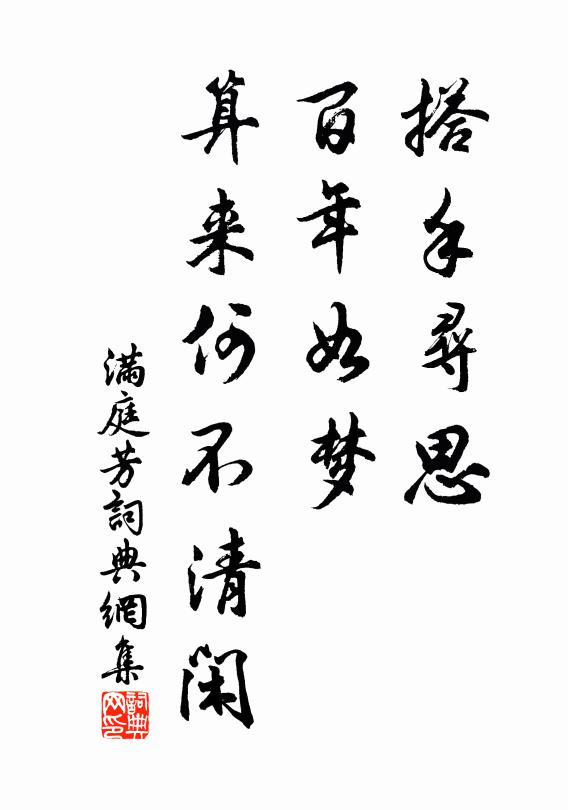 搭手尋思
百年如梦
算来何不清閑
满庭芳詞典網集
詞典
网印